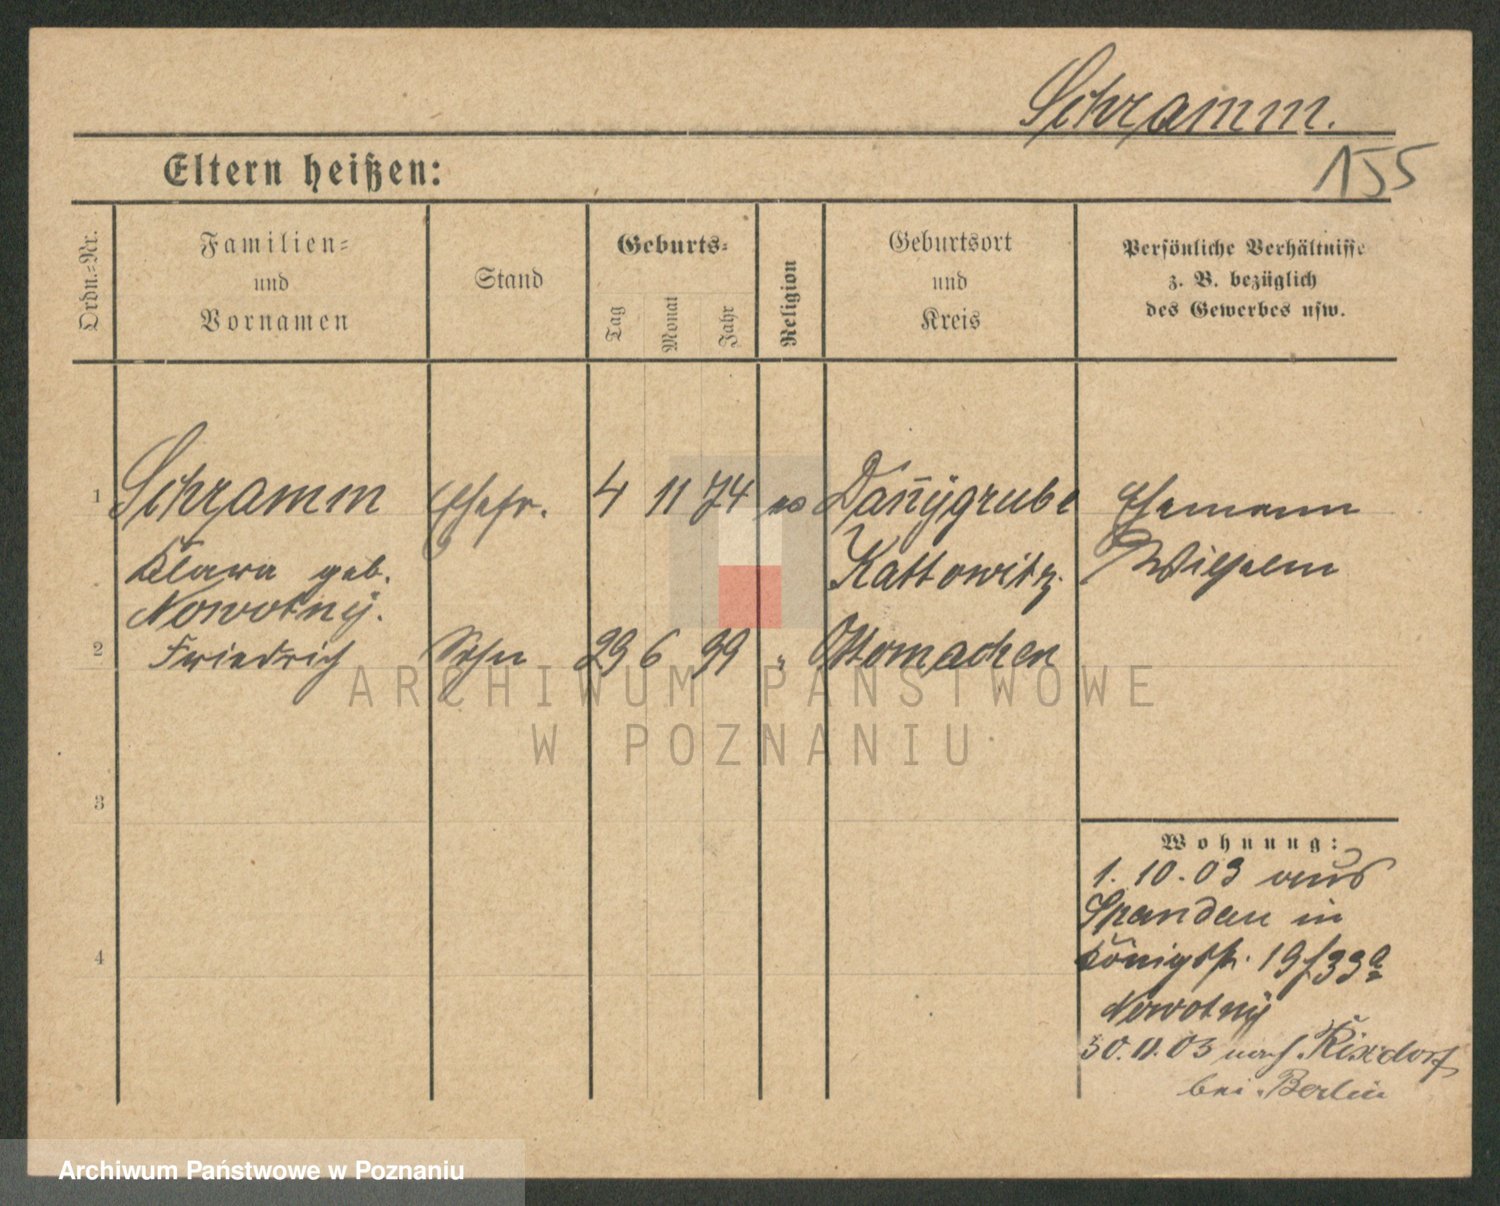 Schramm.
155
Eltern heißen:
Ordn.-Nr.
Familien-
und
Vornamen
Stand
Geburts-
Tag
Monat
Jahr
Religion
Geburtsort
und
Kreis
Persönliche Verhältnisse
z. B. bezüglich
des Gewerbes usw.
1 Schramm Ehefr. 4 11 74 Kattowitz. Ehemann
Klara geb. Wilhelm
Nowotny.
2 Friedrich Sohn 23 6 99 " Ottomachen
3
4
Wohnung:
1. 10. 03 aus
Spandau in
Königstr. 19/33a
Nowotny
30. 11. 03 nach Rixdorf
bei Berlin
ARCHIWUM PAŃSTWOWE
W POZNANIU
Archiwum Państwowe w Poznaniu